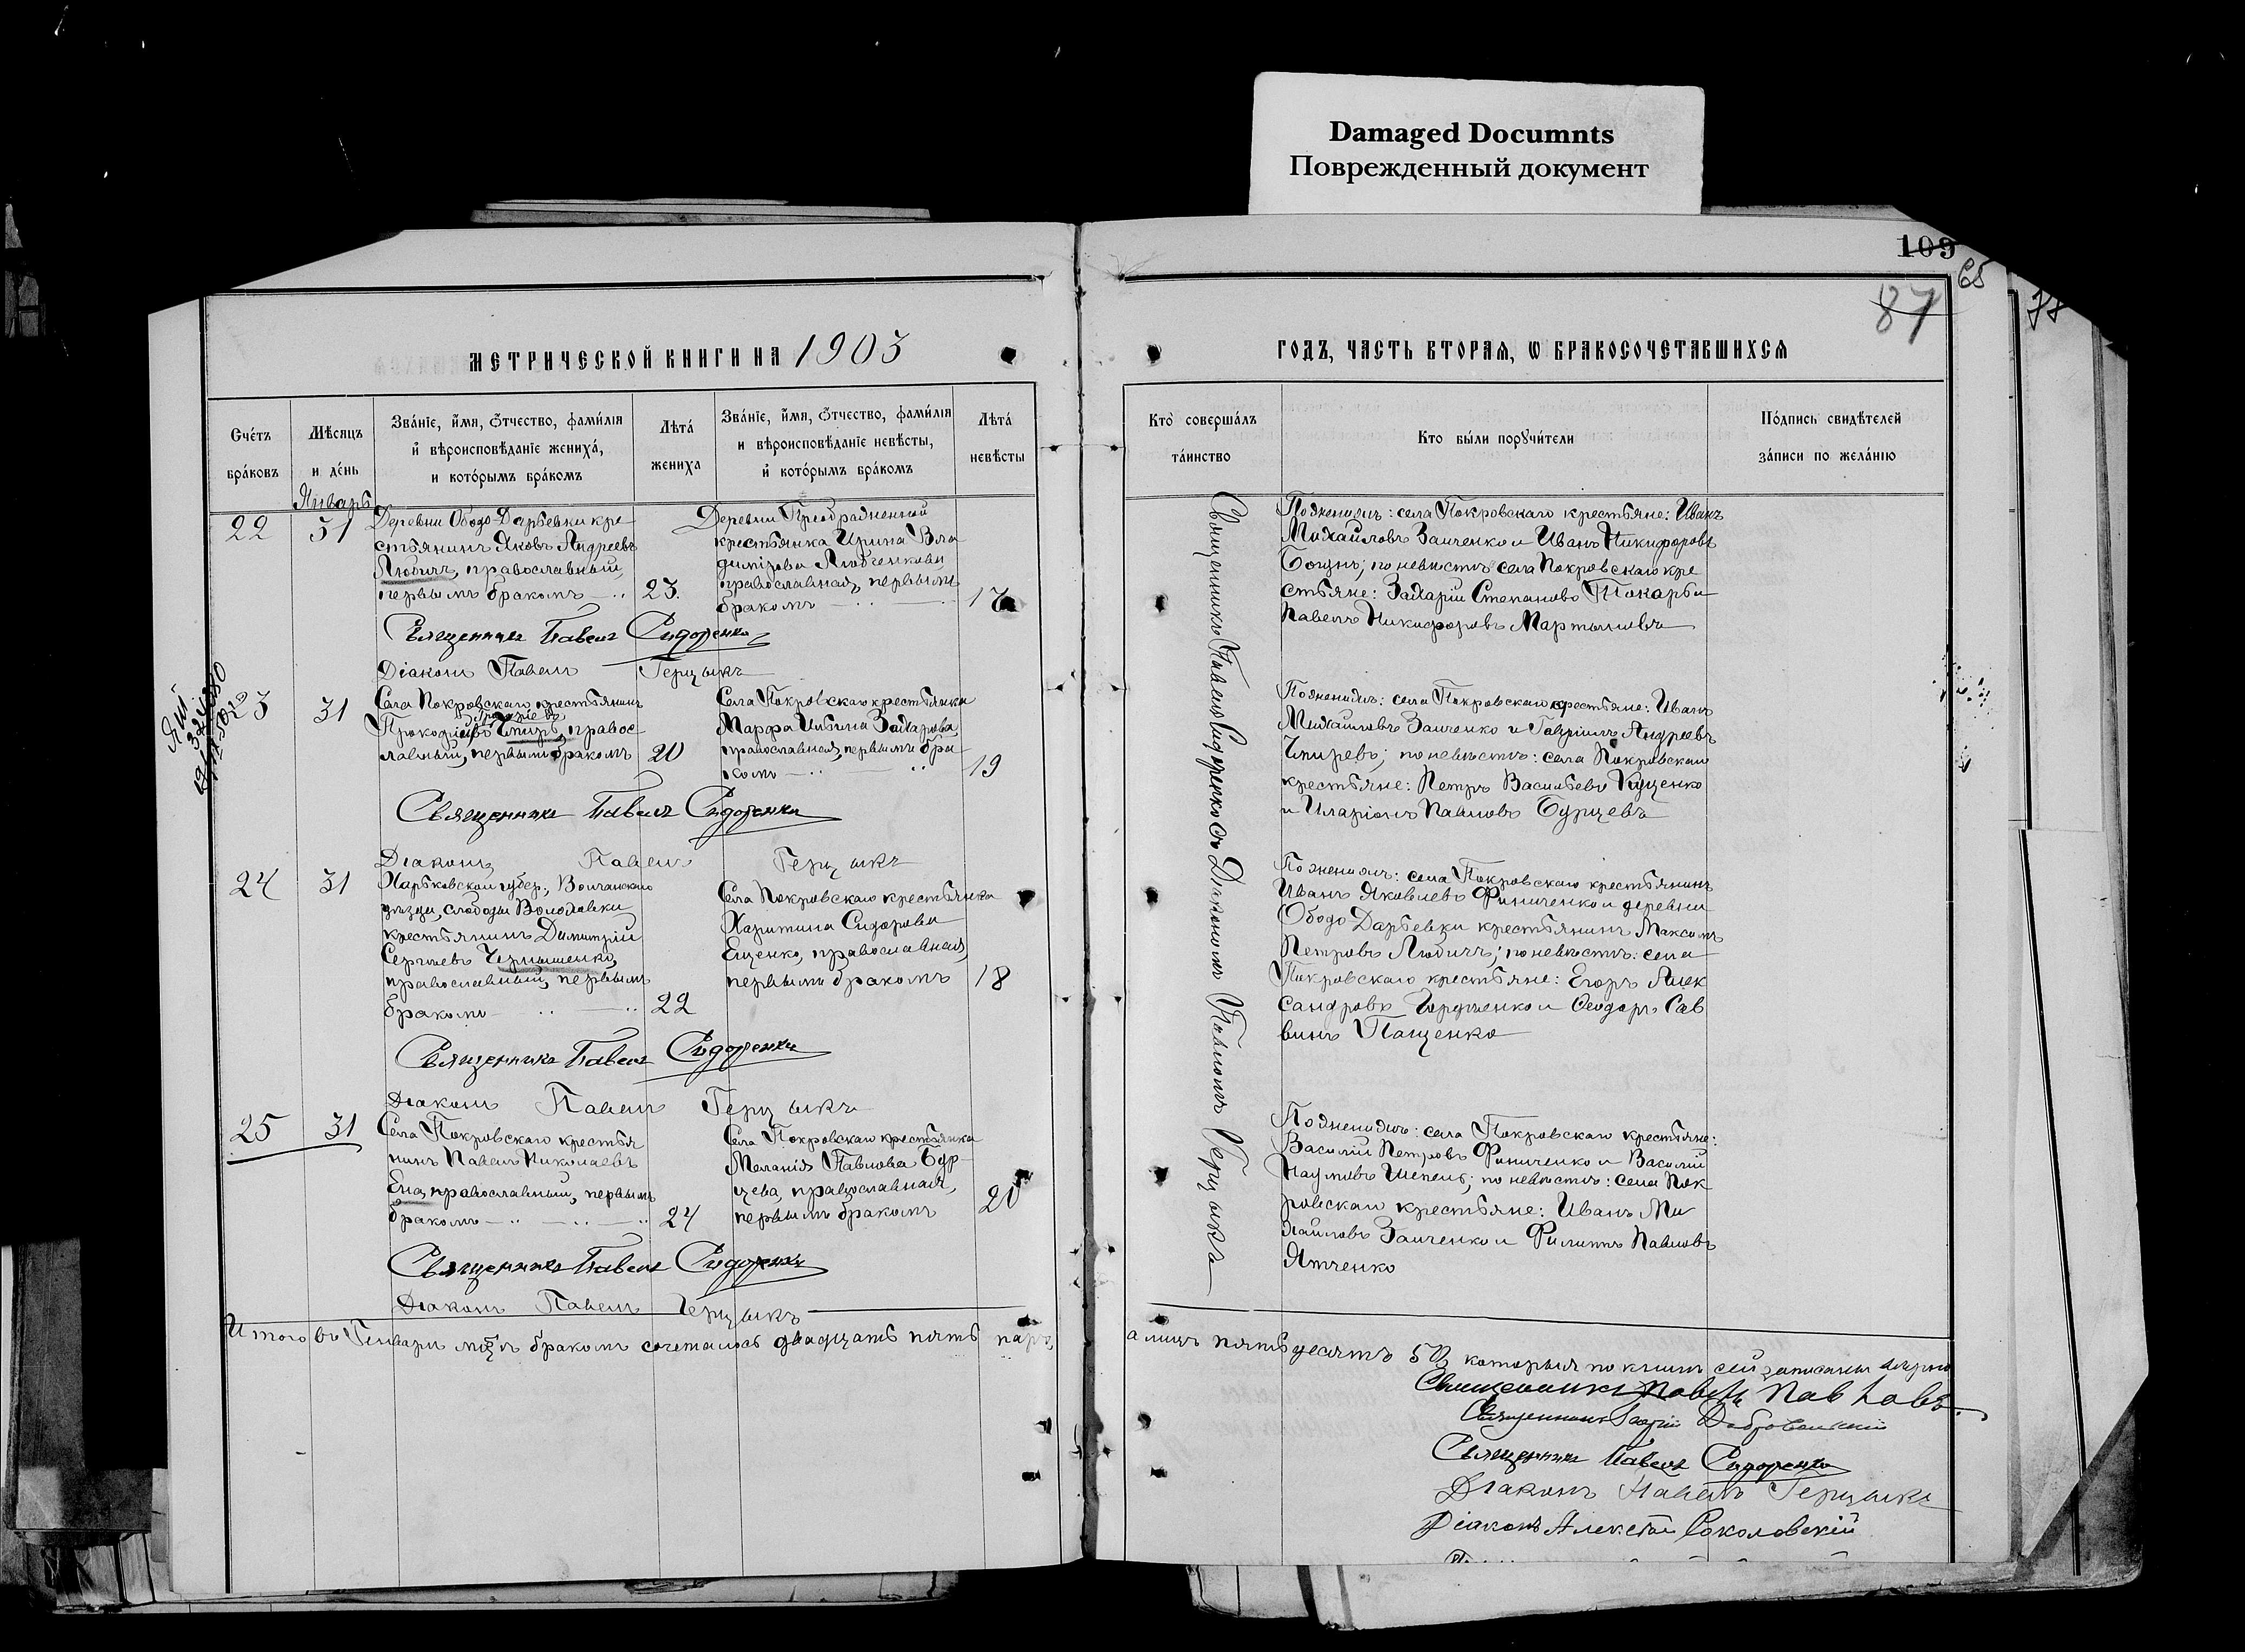 Damaged Documnts
Поврежденный документ
109
65
87
МЕТРИЧЕСКОЙ КНИГИ НА 1903
ГОДЪ, ЧАСТЬ ВТОРАЯ, Ѡ БРАКОСОЧЕТАВШИХСЯ
Счетъ браковъ
Мѣсяцъ и день
Званіе, имя, отчество, фамилія и вѣроисповѣданіе жениха, и которымъ бракомъ
Лѣта жениха
Званіе, имя, отчество, фамилія и вѣроисповѣданіе невѣсты, и которымъ бракомъ
Лѣта невѣсты
Кто совершалъ таинство
Кто были поручители
Подпись свидѣтелей записи по желанію
Январь
22
31
Деревни Ободо-Дарьевки кре
стьянинъ Яковъ Андреевъ
Любичъ, православный,
первымъ бракомъ
23.
Деревни Преображенной
крестьянка Ирина Вла
димірова Любченкова
православная, первымъ
бракомъ
17
Священникъ Павелъ Сидоренко
Діаконъ Павелъ Герцыкъ
23
31
Села Покровскаго крестьянинъ
Прокофіевъ Чпирь, правос
лавный, первымъ бракомъ
20
Села Покровскаго крестьянка
Марфа Захарова
православная, первымъ бра
комъ
19
Священникъ Павелъ Сидоренко
Діаконъ Павелъ Герцыкъ
24
31
Харьковской губер., Волчанскаго
уѣзда, слободы Волоховки
крестьянинъ Димитрій
Сергѣевъ Чернышенко,
православный, первымъ
бракомъ
22
Села Покровскаго крестьянка
Харитина Сидорова
Ещенко, православная,
первымъ бракомъ
18
Священникъ Павелъ Сидоренко
Діаконъ Павелъ Герцыкъ
25
31
Села Покровскаго крестья
нинъ Павелъ Николаевъ
православный, первымъ
бракомъ
24
Села Покровскаго крестьянка
Меланія Павлова Бур
цева, православная,
первымъ бракомъ
20
Священникъ Павелъ Сидоренко
Діаконъ Павелъ Герцыкъ
Итого въ Генварѣ мцѣ бракомъ сочеталось двадцать пять паръ,
Священникъ Павелъ Сидоренко съ Діакономъ Павломъ Герцыкъ
По женихѣ: села Покровскаго крестьяне: Иванъ
Михайловъ Заиченко и Иванъ Никифоровъ
Богунъ; по невѣстѣ села Покровскаго кре
стьяне: Захарій Степановъ Токарь и
Павелъ Никифоровъ Мартыновъ
По женихѣ: села Покровскаго крестьяне: Иванъ
Михаиловъ Заиченко и Гавріилъ Андреевъ
Чпиревъ; по невѣстѣ: села Покровскаго
крестьяне: Петръ Васильевъ Куценко
и Иларіонъ Павловъ Бурцевъ
По женихѣ: села Покровскаго крестьянинъ
Иванъ Яковлевъ Финиченко и деревни
Ободо-Дарьевки крестьянинъ Максимъ
Петровъ Любичъ; по невѣстѣ: села
Покровскаго крестьяне: Егоръ Алек
сандровъ Гордіенко и Ѳеодоръ Сав
винъ Пащенко
По женихѣ: села Покровскаго крестьяне:
Василій Петровъ Финиченко и Василій
Наумовъ Шепель; по невѣстѣ: села Пок
ровскаго крестьяне: Иванъ Ми
хайловъ Заиченко и Филиппъ Павловъ
Ятченко
а лицъ пятьдесятъ 50, которыя по книгѣ сей записаны вѣрно
Священникъ Павелъ Павловъ.
Священникъ Добровольскій
Священникъ Павелъ Сидоренко
Діаконъ Павелъ Герцыкъ
Діаконъ Алексѣй Соколовскій